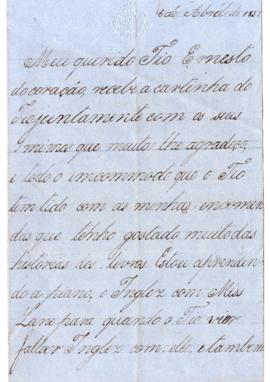 6 de Abril de 18
Meu querido Tio Ernesto
do coração, recebi a cartinha do
Tio juntamente com as suas
que muito lhe agradeço,
e todo o incommodo que o Tio
tem tido com as minhas encomen
das que tenho gostado muito das
historias dos livros. Estou aprenden
do a piano, e Inglez com Miss
Lane para quando o Tio vier
fallar Inglez com elle, e tambem